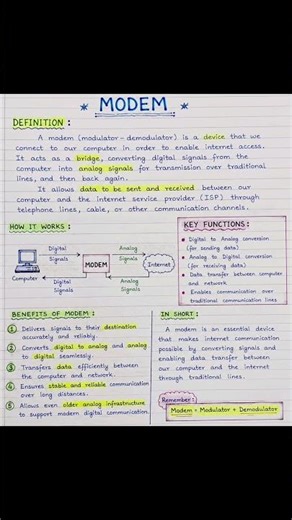 MODEM
DEFINITION :
A modem (modulator - demodulator) is a device that we
connect to our computer in order to enable internet access.
It acts as a bridge, converting digital signals from the
computer into analog signals for transmission over traditional
lines, and then back again.
It allows data to be sent and received between our
computer and the internet service provider (ISP) through
telephone lines, cable, or other communication channels.
HOW IT WORKS :
Digital
Signals
Analog
Signals
Computer
MODEM
Internet
Digital
Signals
Analog
Signals
KEY FUNCTIONS :
Digital to Analog conversion
(for sending data)
Analog to Digital conversion
(for receiving data)
Data transfer between computer
and network
Enables communication over
traditional communication lines
BENEFITS OF MODEM :
1 Delivers signals to their destination
accurately and reliably.
2 Converts digital to analog and analog
to digital seamlessly.
3 Transfers data efficiently between
the computer and network.
4 Ensures stable and reliable communication
over long distances.
5 Allows even older analog infrastructure
to support modern digital communication.
IN SHORT :
A modem is an essential device
that makes internet communication
possible by converting signals and
enabling data transfer between
our computer and the internet
through traditional lines.
Remember :
Modem = Modulator + Demodulator